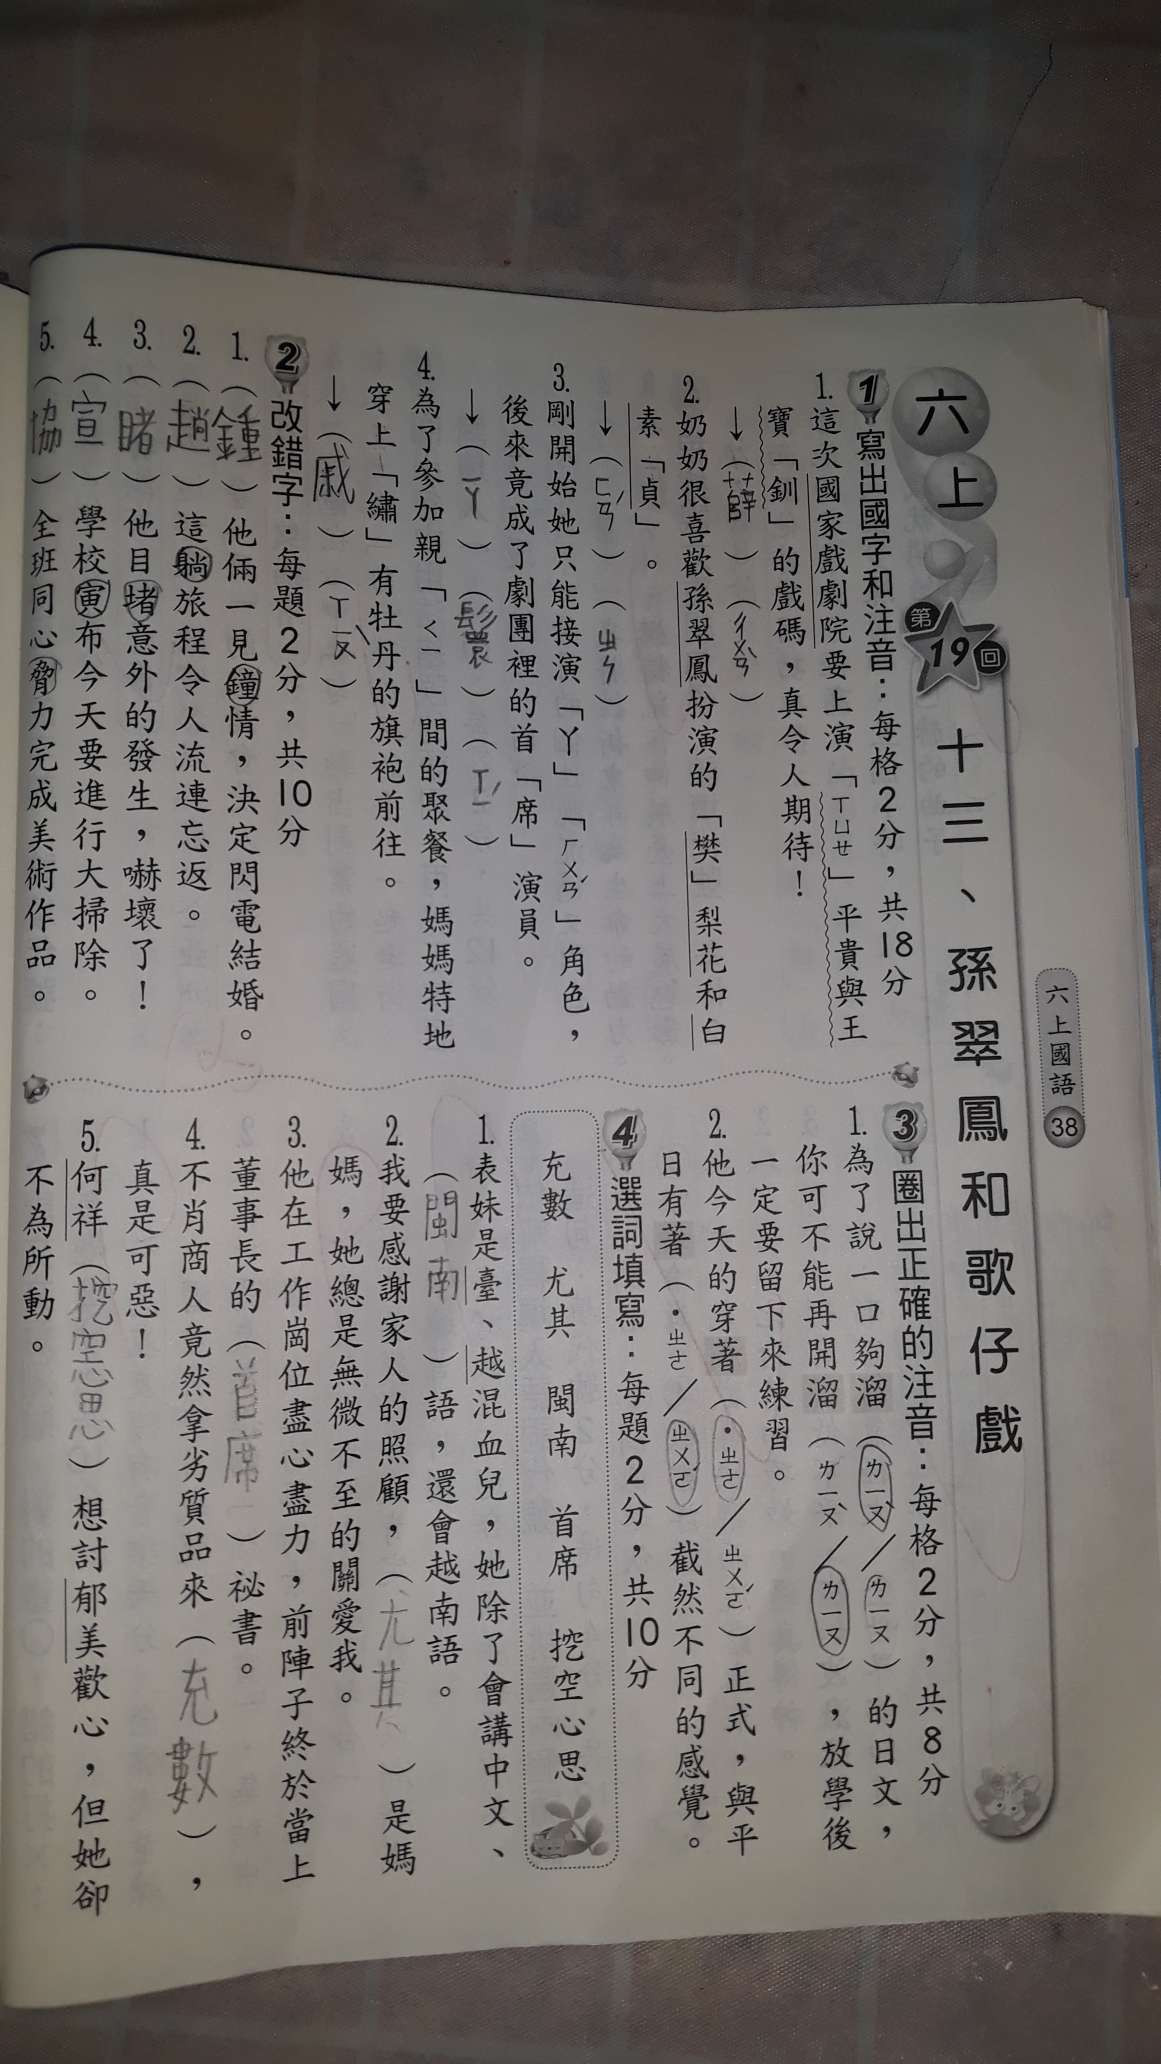 六上國語 38
六上 第19回 十三、孫翠鳳和歌仔戲
1 寫出國字和注音：每格2分，共18分
1. 這次國家戲劇院要上演「ㄒㄩㄝ」平貴與王
寶「釧」的戲碼，真令人期待！
→（薛）（ㄔㄨㄢˋ）
2. 奶奶很喜歡孫翠鳳扮演的「樊」梨花和白
素「貞」。
→（ㄈㄢˊ）（ㄓㄣ）
3. 剛開始她只能接演「ㄚ」「ㄏㄨㄢˊ」角色，
後來竟成了劇團裡的首「席」演員。
→（ㄚ）（鬟）（ㄒㄧˊ）
4. 為了參加親「ㄑㄧ」間的聚餐，媽媽特地
穿上「繡」有牡丹的旗袍前往。
→（戚）（ㄒㄧㄡˋ）
2 改錯字：每題2分，共10分
1.（鍾）他倆一見鐘情，決定閃電結婚。
2.（趟）這躺旅程令人流連忘返。
3.（睹）他目堵意外的發生，嚇壞了！
4.（宣）學校寅布今天要進行大掃除。
5.（協）全班同心脅力完成美術作品。
3 圈出正確的注音：每格2分，共8分
1. 為了說一口夠溜（ㄌㄧㄡˋ／ㄌㄧㄡ）的日文，
你可不能再開溜（ㄌㄧㄡˋ／ㄌㄧㄡ），放學後
一定要留下來練習。
2. 他今天的穿著（˙ㄓㄜ／ㄓㄨㄛˊ）正式，與平
日有著（˙ㄓㄜ／ㄓㄨㄛˊ）截然不同的感覺。
4 選詞填寫：每題2分，共10分
充數 尤其 閩南 首席 挖空心思
1. 表妹是臺、越混血兒，她除了會講中文、
（閩南）語，還會越南語。
2. 我要感謝家人的照顧，（尤其）是媽
媽，她總是無微不至的關愛我。
3. 他在工作崗位盡心盡力，前陣子終於當上
董事長的（首席）祕書。
4. 不肖商人竟然拿劣質品來（充數），
真是可惡！
5. 何祥（挖空心思）想討郁美歡心，但她卻
不為所動。